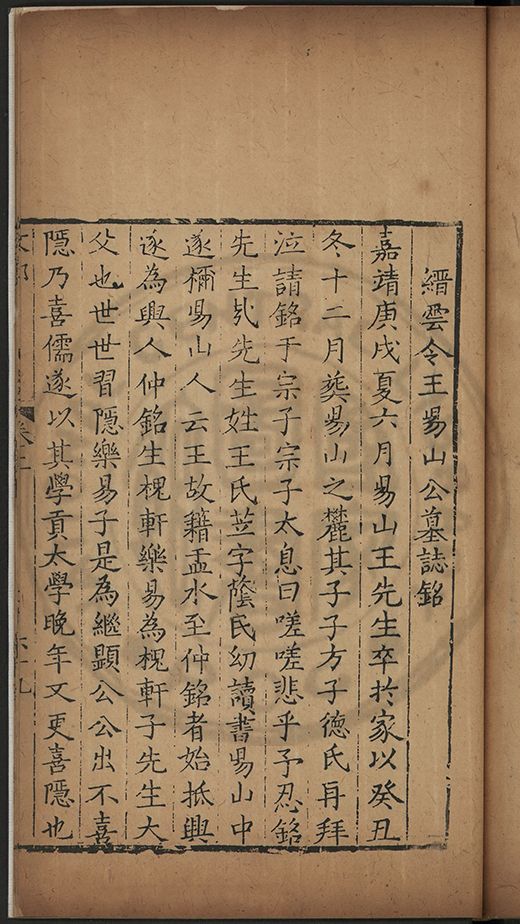 縉雲令王昜山公墓誌銘
嘉靖庚戌夏六月昜山王先生卒扵家以癸丑
冬十二月葬昜山之麓其子子方子徳氏再拜
泣請銘于宗子宗子太息曰嗟嗟悲乎予忍銘
先生㢤先生姓王氏苙字蔭民幼讀書昜山中
遂稱昜山人云王故籍盂水至仲銘者始抵興
遂為興人仲銘生槐軒樂易為槐軒子先生大
父也世世習隱樂易子是為繼顯公公出不喜
隱乃喜儒遂以其學貢太學晚年又更喜隱也